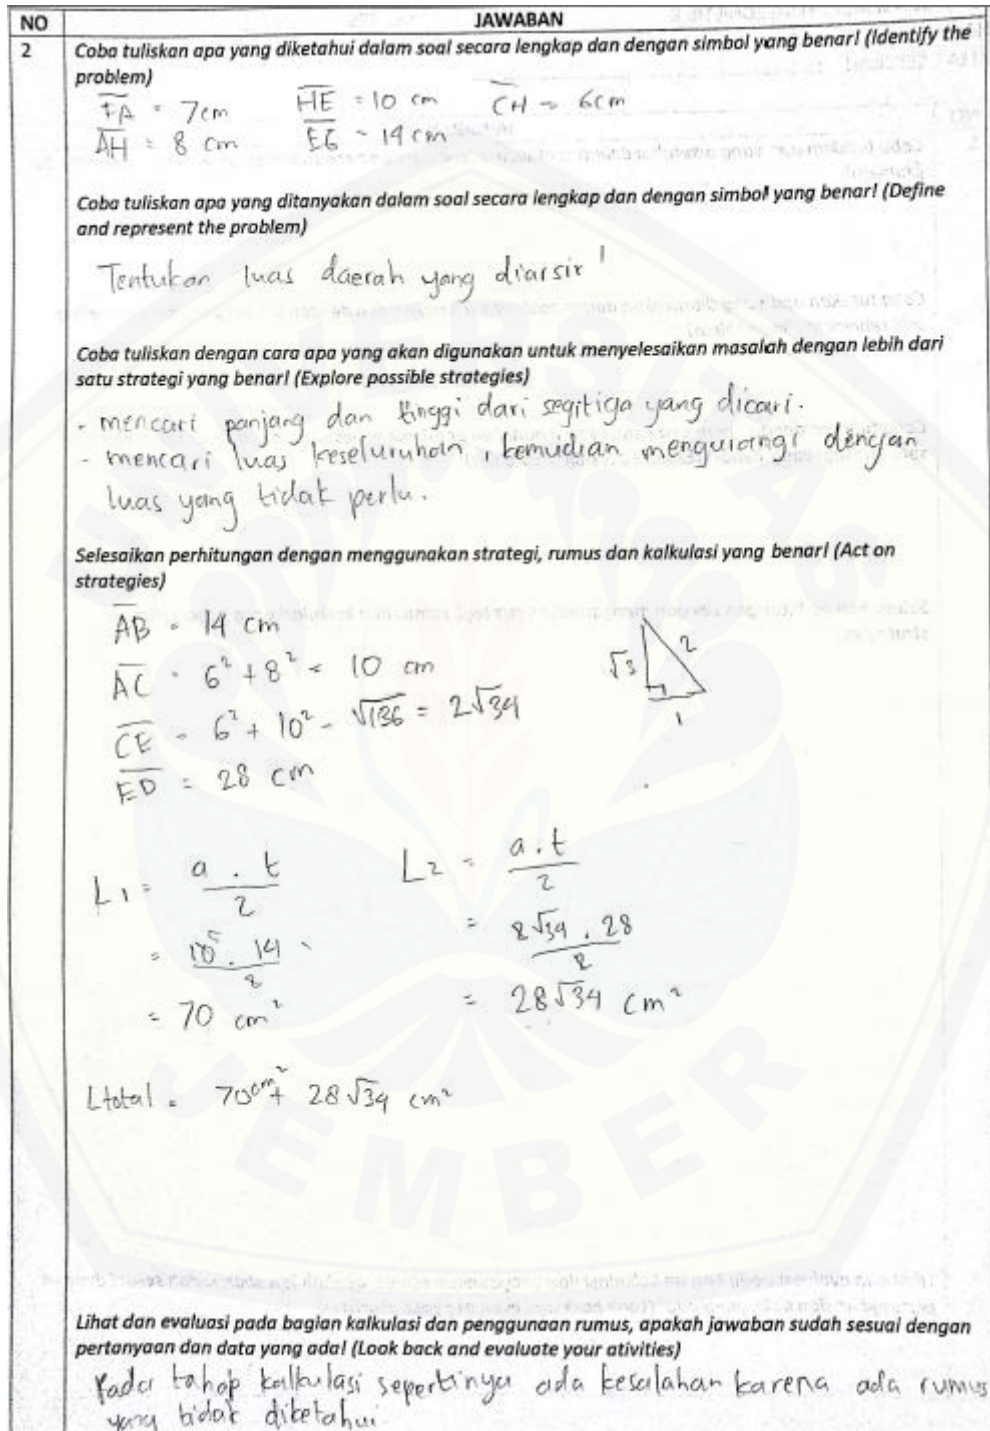 NO JAWABAN
2 Coba tuliskan apa yang diketahui dalam soal secara lengkap dan dengan simbol yang benar! (Identify the
problem)
FA = 7cm HE = 10 cm CH = 6cm
AH = 8 cm EG = 14 cm
Coba tuliskan apa yang ditanyakan dalam soal secara lengkap dan dengan simbol yang benar! (Define
and represent the problem)
Tentukan luas daerah yang diarsir!
Coba tuliskan dengan cara apa yang akan digunakan untuk menyelesaikan masalah dengan lebih dari
satu strategi yang benar! (Explore possible strategies)
- mencari panjang dan tinggi dari segitiga yang dicari.
- mencari luas keseluruhan, kemudian mengurangi dengan
luas yang tidak perlu.
Selesaikan perhitungan dengan menggunakan strategi, rumus dan kalkulasi yang benar! (Act on
strategies)
AB = 14 cm
AC = 6² + 8² = 10 cm √3 2 1
CE = 6² + 10² = √136 = 2√34
ED = 28 cm
L1 = a . t / 2 L2 = a . t / 2
= 10 5 . 14 / 2 = 2√34 . 28 / 2
= 70 cm² = 28√34 cm²
Ltotal = 70 cm² + 28√34 cm²
UNIVERSITAS JEMBER
Lihat dan evaluasi pada bagian kalkulasi dan penggunaan rumus, apakah jawaban sudah sesuai dengan
pertanyaan dan data yang ada! (Look back and evaluate your ativities)
Pada tahap kalkulasi sepertinya ada kesalahan karena ada rumus
yang tidak diketahui.